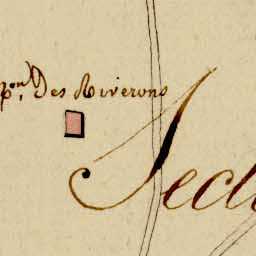 pon. Des Riverons
Secti